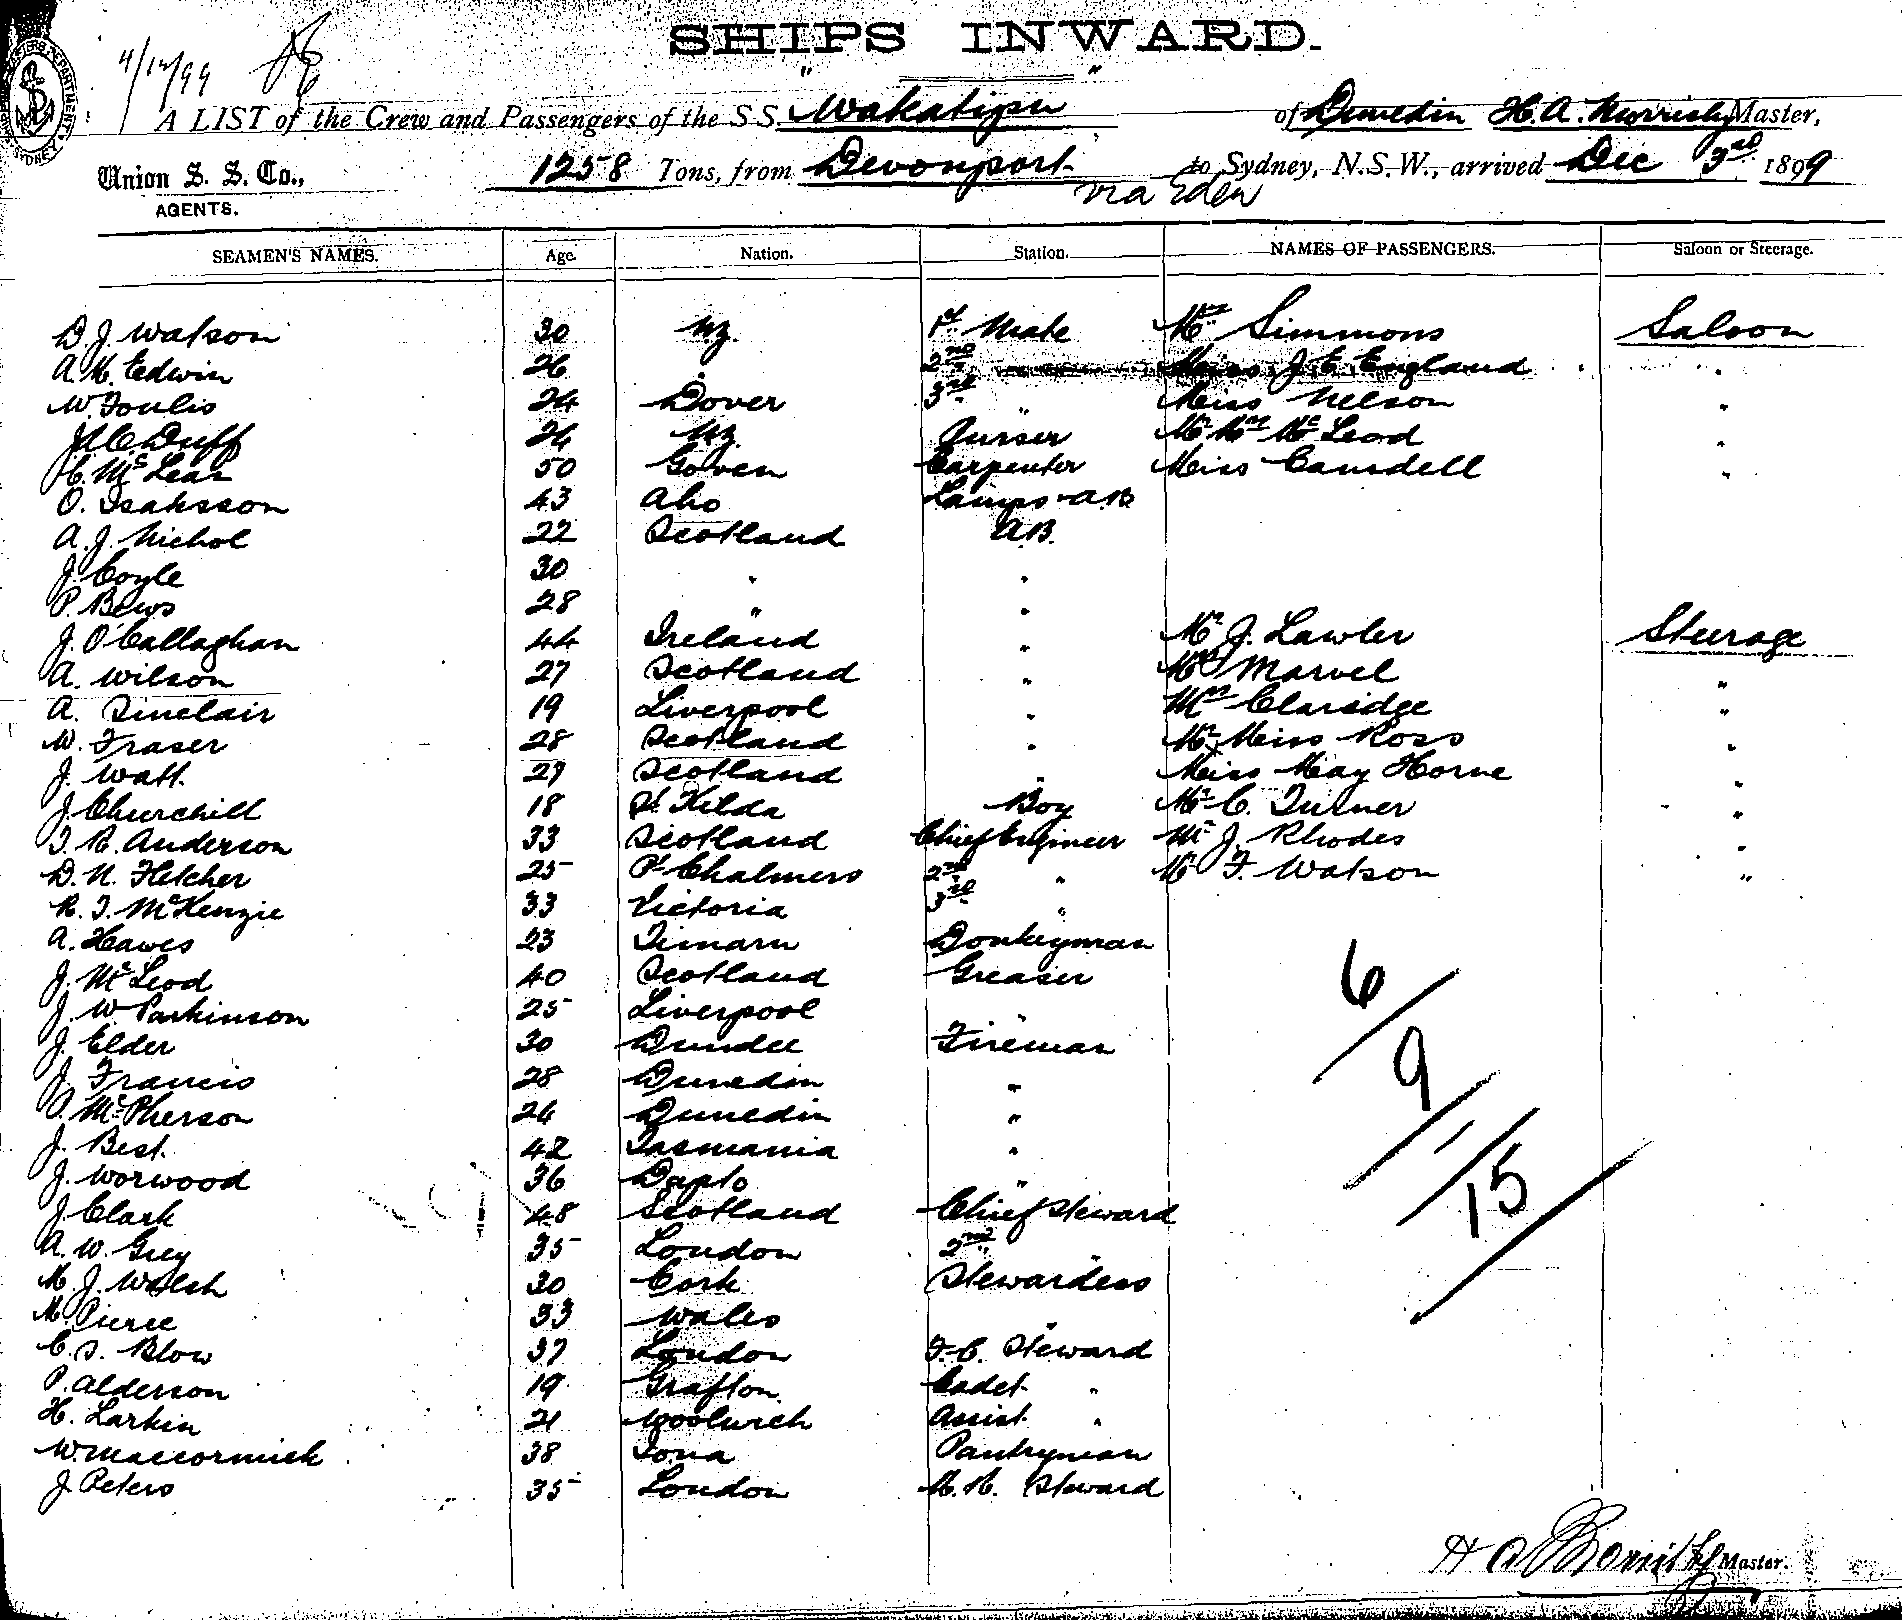 SHIPS INWARD.
4/12/99
A LIST of the Crew and Passengers of the S.S. Wakatipu of Dunedin H. A. Master,
Union S. S. Co., 1258 Tons, from Devonport to Sydney, N.S.W., arrived Dec 3rd 1899
via Eden
AGENTS.
SEAMEN'S NAMES. Age. Nation. Station. NAMES OF PASSENGERS. Saloon or Steerage.
D. J. Watson 30 N.Z. 1st Mate Mrs Simmons Saloon
A. M. Edwin 26 " 2nd " Miss J E England "
W. Foulis 24 Dover 3rd " Miss Nelson "
Duff 24 N.Z. Purser Mr Mrs McLeod "
H. McLean 50 Goven Carpenter Miss Camdell "
O. Isaksson 43 Abo Lamps A.B.
A. J. Nichol 22 Scotland A.B.
J. Coyle 30 " "
P. Bews 28 " "
J. O'Callaghan 44 Ireland " Mr J. Lawler Steerage
A. Wilson 27 Scotland " Marvel "
A. Sinclair 19 Liverpool " Mrs Claridge "
W. Fraser 28 Scotland " Mr Miss Ross "
J. Watt. 27 Scotland " Miss May Horne "
J. Churchill 18 St. Kilda Boy Mr C. Turner "
T. R. Anderson 33 Scotland Chief Engineer Mr J. Rhodes "
D. N. Fletcher 25 Pt Chalmers 2nd " Mr F. Watson "
R. T. McKenzie 33 Victoria 3rd "
A. Hawes 23 Timaru Donkeyman
J. McLeod 40 Scotland Greaser
J. W. Parkinson 25 Liverpool "
J. Elder 30 Dundee Fireman
J. Francis 28 Dunedin "
McPherson 24 Dunedin "
J. Best. 42 Tasmania "
J. Worwood 36 Dapto "
J. Clark 48 Scotland Chief Steward
A. W. Grey 35 London 2nd "
M. J. Walsh 30 Cork Stewardess
M. Pierce 33 Wales "
C. S. Blow 37 London F. C. Steward
P. Alderson 19 Grafton Cadet "
H. Larkin 21 Woolwich Assist "
W. MacCormick 38 Iona Pantryman
J. Peters 35 London M. R. Steward
6/9/1/15
H A Master.